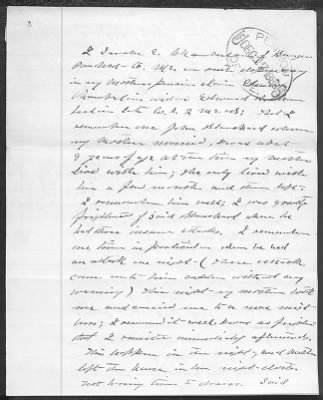 I E. Chamberlin of Bangor
Penobscot Co. Me. on oath depose & say
in my Mothers pension claim
Chamberlin widow Edward
late Co. A. 2 Me. That I
remember one John Blanchard whom
my Mother married, I was about
9 years of age at the time my mother
lived with him, she only lived with
him a few months and then left.
I remember him well, I was greatly
frightened of said Blanchard when he
had those insane attacks. I remember
one time in particular when he had
an attack one night - (These attacks
come onto him sudden without any
warning) This night my mother took
me and carried me to a near neigh-
bors; I remember it well, I was so frightened
that I immediately afterwards.
This happen in the night, and mother
left the house in her night clothes
not having time to dress. Said